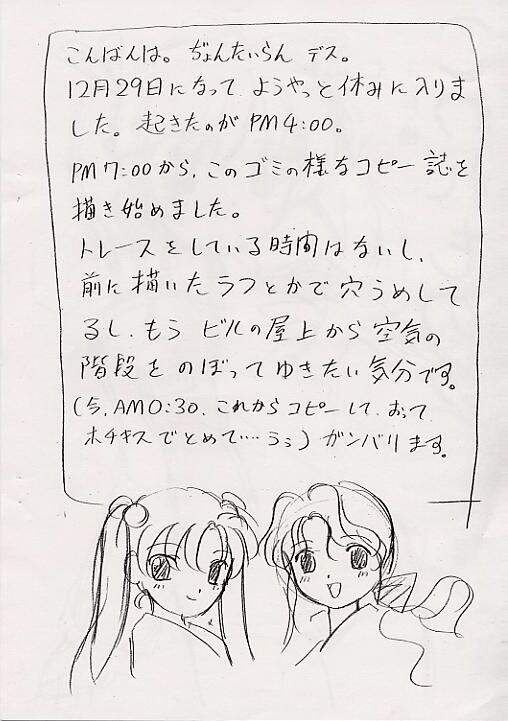 こんばんは。ぢょんたいらん デス。
12月29日になって、ようやっと休みに入りま
した。起きたのが PM4:00。
PM7:00から、このゴミの様なコピー誌を
描き始めました。
トレースをしている時間はないし、
前に描いたラフとかで穴うめして
るし、もう ビルの屋上から空気の
階段を のぼって ゆきたい気分です。
(今、AM0:30、これからコピーして、おって
ホチキスでとめて…うぅ) ガンバリます。